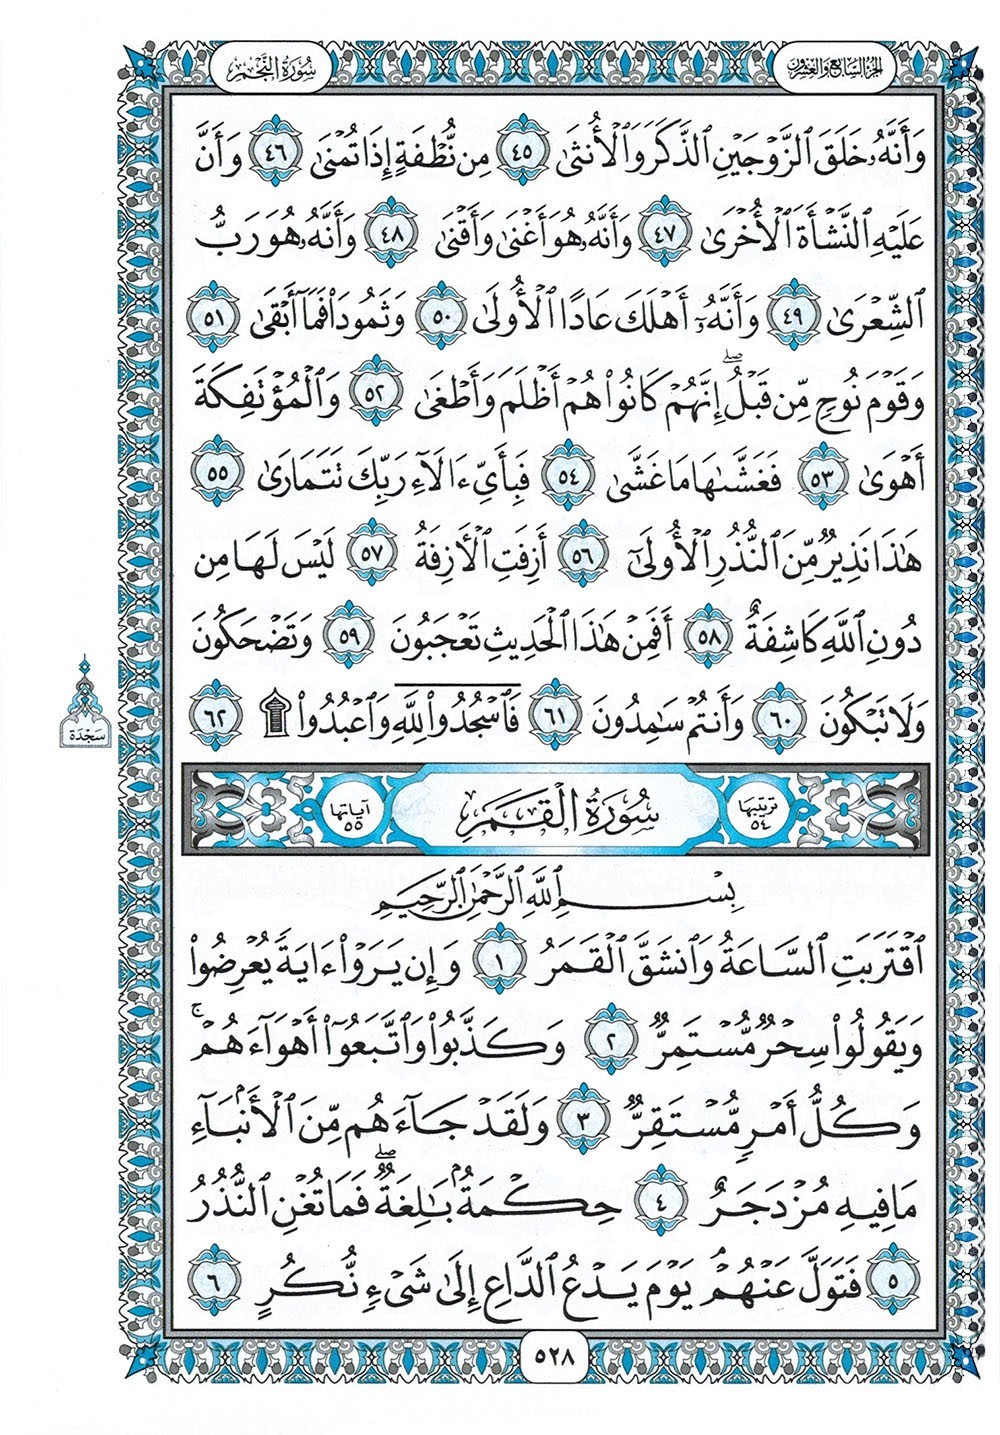 الجزء السابع والعشرون
سُورَةُ النَّجْمِ
وَأَنَّهُۥ خَلَقَ ٱلزَّوْجَيْنِ ٱلذَّكَرَ وَٱلْأُنثَىٰ ٤٥ مِن نُّطْفَةٍ إِذَا تُمْنَىٰ ٤٦ وَأَنَّ
عَلَيْهِ ٱلنَّشْأَةَ ٱلْأُخْرَىٰ ٤٧ وَأَنَّهُۥ هُوَ أَغْنَىٰ وَأَقْنَىٰ ٤٨ وَأَنَّهُۥ هُوَ رَبُّ
ٱلشِّعْرَىٰ ٤٩ وَأَنَّهُۥٓ أَهْلَكَ عَادًا ٱلْأُولَىٰ ٥٠ وَثَمُودَا۟ فَمَآ أَبْقَىٰ ٥١
وَقَوْمَ نُوحٍ مِّن قَبْلُ ۖ إِنَّهُمْ كَانُوا۟ هُمْ أَظْلَمَ وَأَطْغَىٰ ٥٢ وَٱلْمُؤْتَفِكَةَ
أَهْوَىٰ ٥٣ فَغَشَّىٰهَا مَا غَشَّىٰ ٥٤ فَبِأَىِّ ءَالَآءِ رَبِّكَ تَتَمَارَىٰ ٥٥
هَٰذَا نَذِيرٌ مِّنَ ٱلنُّذُرِ ٱلْأُولَىٰٓ ٥٦ أَزِفَتِ ٱلْءَازِفَةُ ٥٧ لَيْسَ لَهَا مِن
دُونِ ٱللَّهِ كَاشِفَةٌ ٥٨ أَفَمِنْ هَٰذَا ٱلْحَدِيثِ تَعْجَبُونَ ٥٩ وَتَضْحَكُونَ
وَلَا تَبْكُونَ ٦٠ وَأَنتُمْ سَٰمِدُونَ ٦١ فَٱسْجُدُوا۟ لِلَّهِ وَٱعْبُدُوا۟ ۩ ٦٢
سَجْدَة
ترتيبها ٥٤
سُورَةُ الْقَمَرِ
آياتها ٥٥
بِسْمِ ٱللَّهِ ٱلرَّحْمَٰنِ ٱلرَّحِيمِ
ٱقْتَرَبَتِ ٱلسَّاعَةُ وَٱنشَقَّ ٱلْقَمَرُ ١ وَإِن يَرَوْا۟ ءَايَةً يُعْرِضُوا۟
وَيَقُولُوا۟ سِحْرٌ مُّسْتَمِرٌّ ٢ وَكَذَّبُوا۟ وَٱتَّبَعُوٓا۟ أَهْوَآءَهُمْ ۚ
وَكُلُّ أَمْرٍ مُّسْتَقِرٌّ ٣ وَلَقَدْ جَآءَهُم مِّنَ ٱلْأَنۢبَآءِ
مَا فِيهِ مُزْدَجَرٌ ٤ حِكْمَةٌۢ بَٰلِغَةٌ ۖ فَمَا تُغْنِ ٱلنُّذُرُ
٥ فَتَوَلَّ عَنْهُمْ ۘ يَوْمَ يَدْعُ ٱلدَّاعِ إِلَىٰ شَىْءٍ نُّكُرٍ ٦
٥٢٨